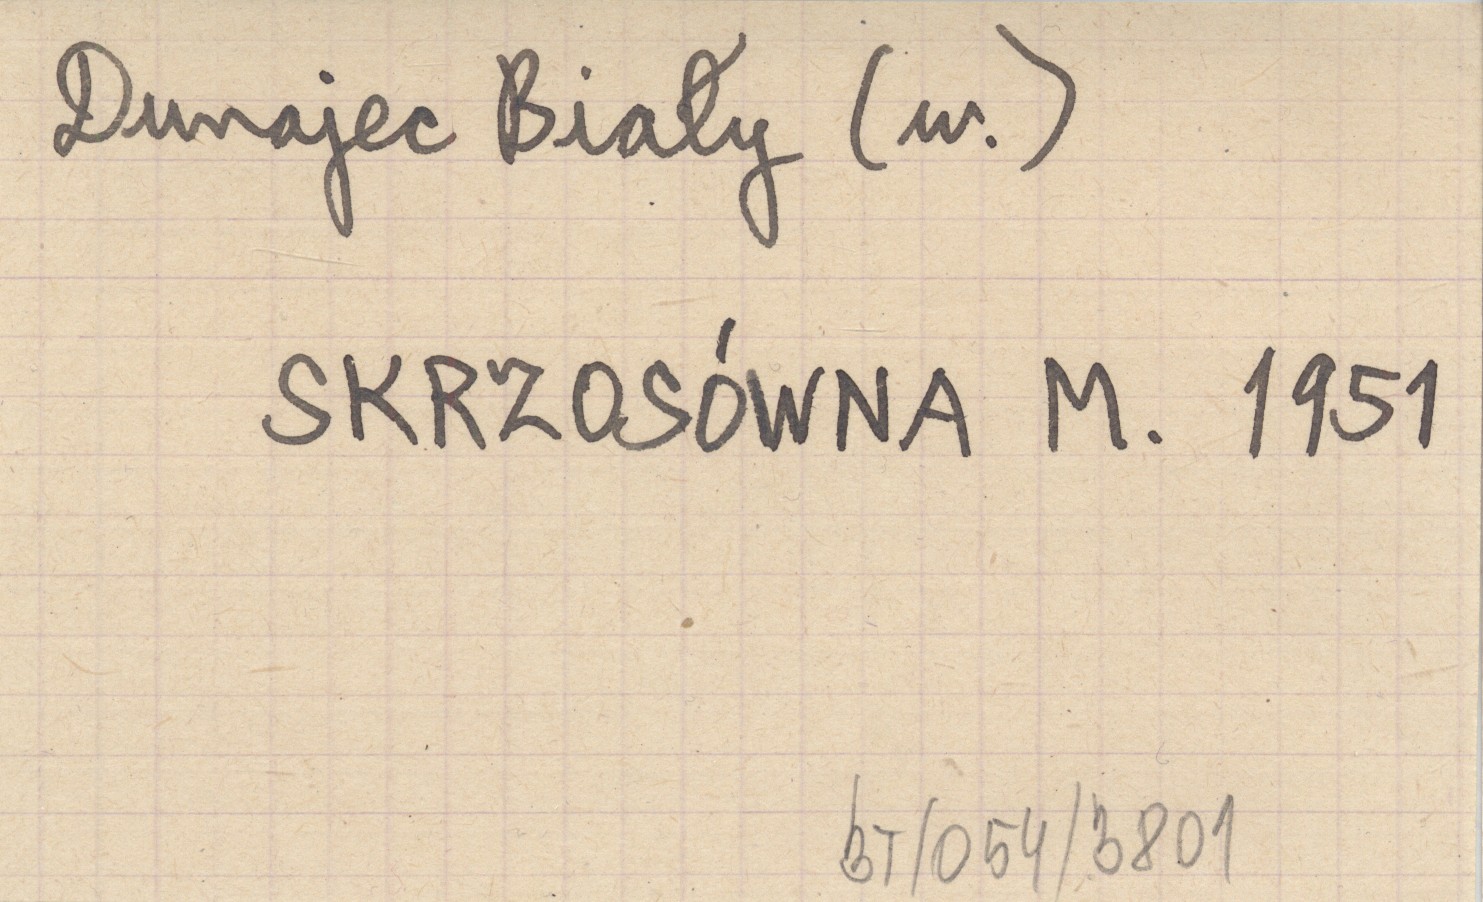 Dunajec Biały (w.)
SKRZOSÓWNA M. 1951
BT/054/3801